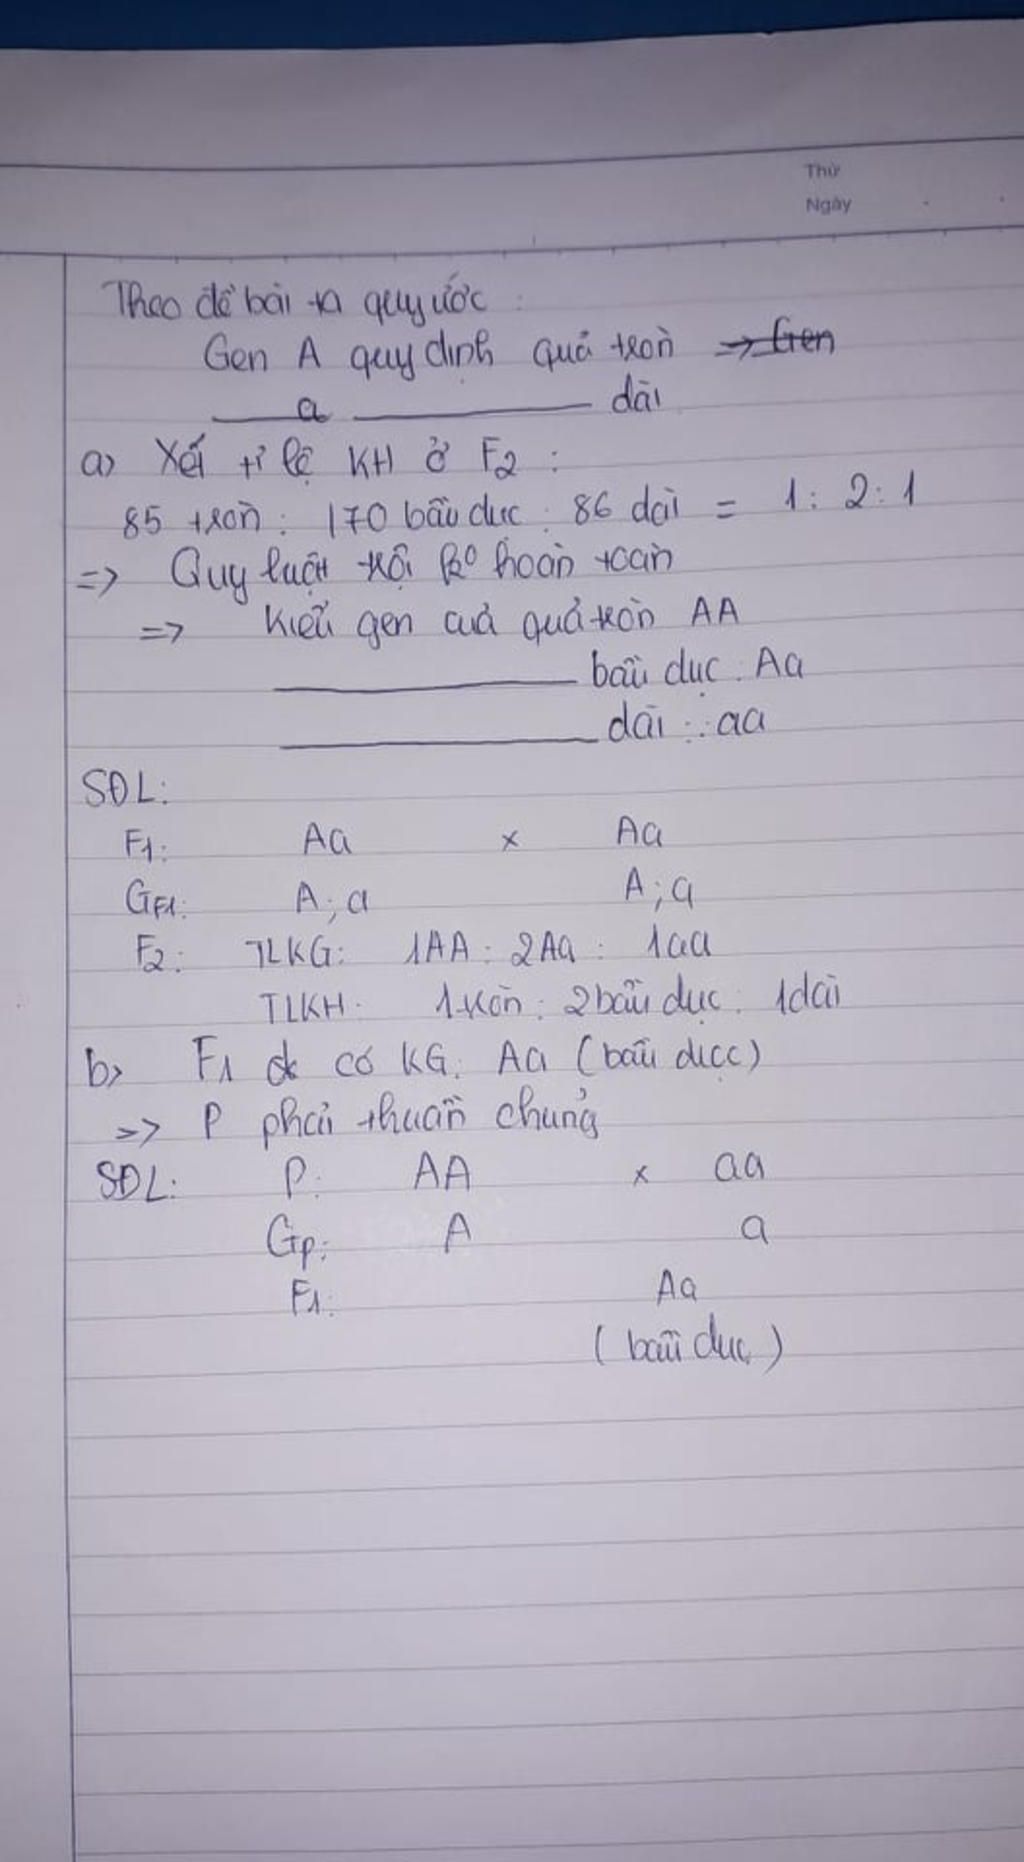 Thứ
Ngày
Theo đề bài ta quy ước :
Gen A quy định quả tròn => Gen
a dài
a) Xét tỉ lệ KH ở F2 :
85 tròn : 170 bầu dục : 86 dài = 1 : 2 : 1
=> Quy luật trội ko hoàn toàn
=> Kiểu gen của quả tròn AA
bầu dục : Aa
dài : aa
SĐL:
F1: Aa x Aa
GF1: A ; a A ; a
F2: TLKG: 1AA : 2Aa : 1aa
TLKH: 1 tròn : 2 bầu dục : 1 dài
b) F1 có KG: Aa (bầu dục)
=> P phải thuần chủng
SĐL: P: AA x aa
Gp: A a
F1: Aa
( bầu dục )